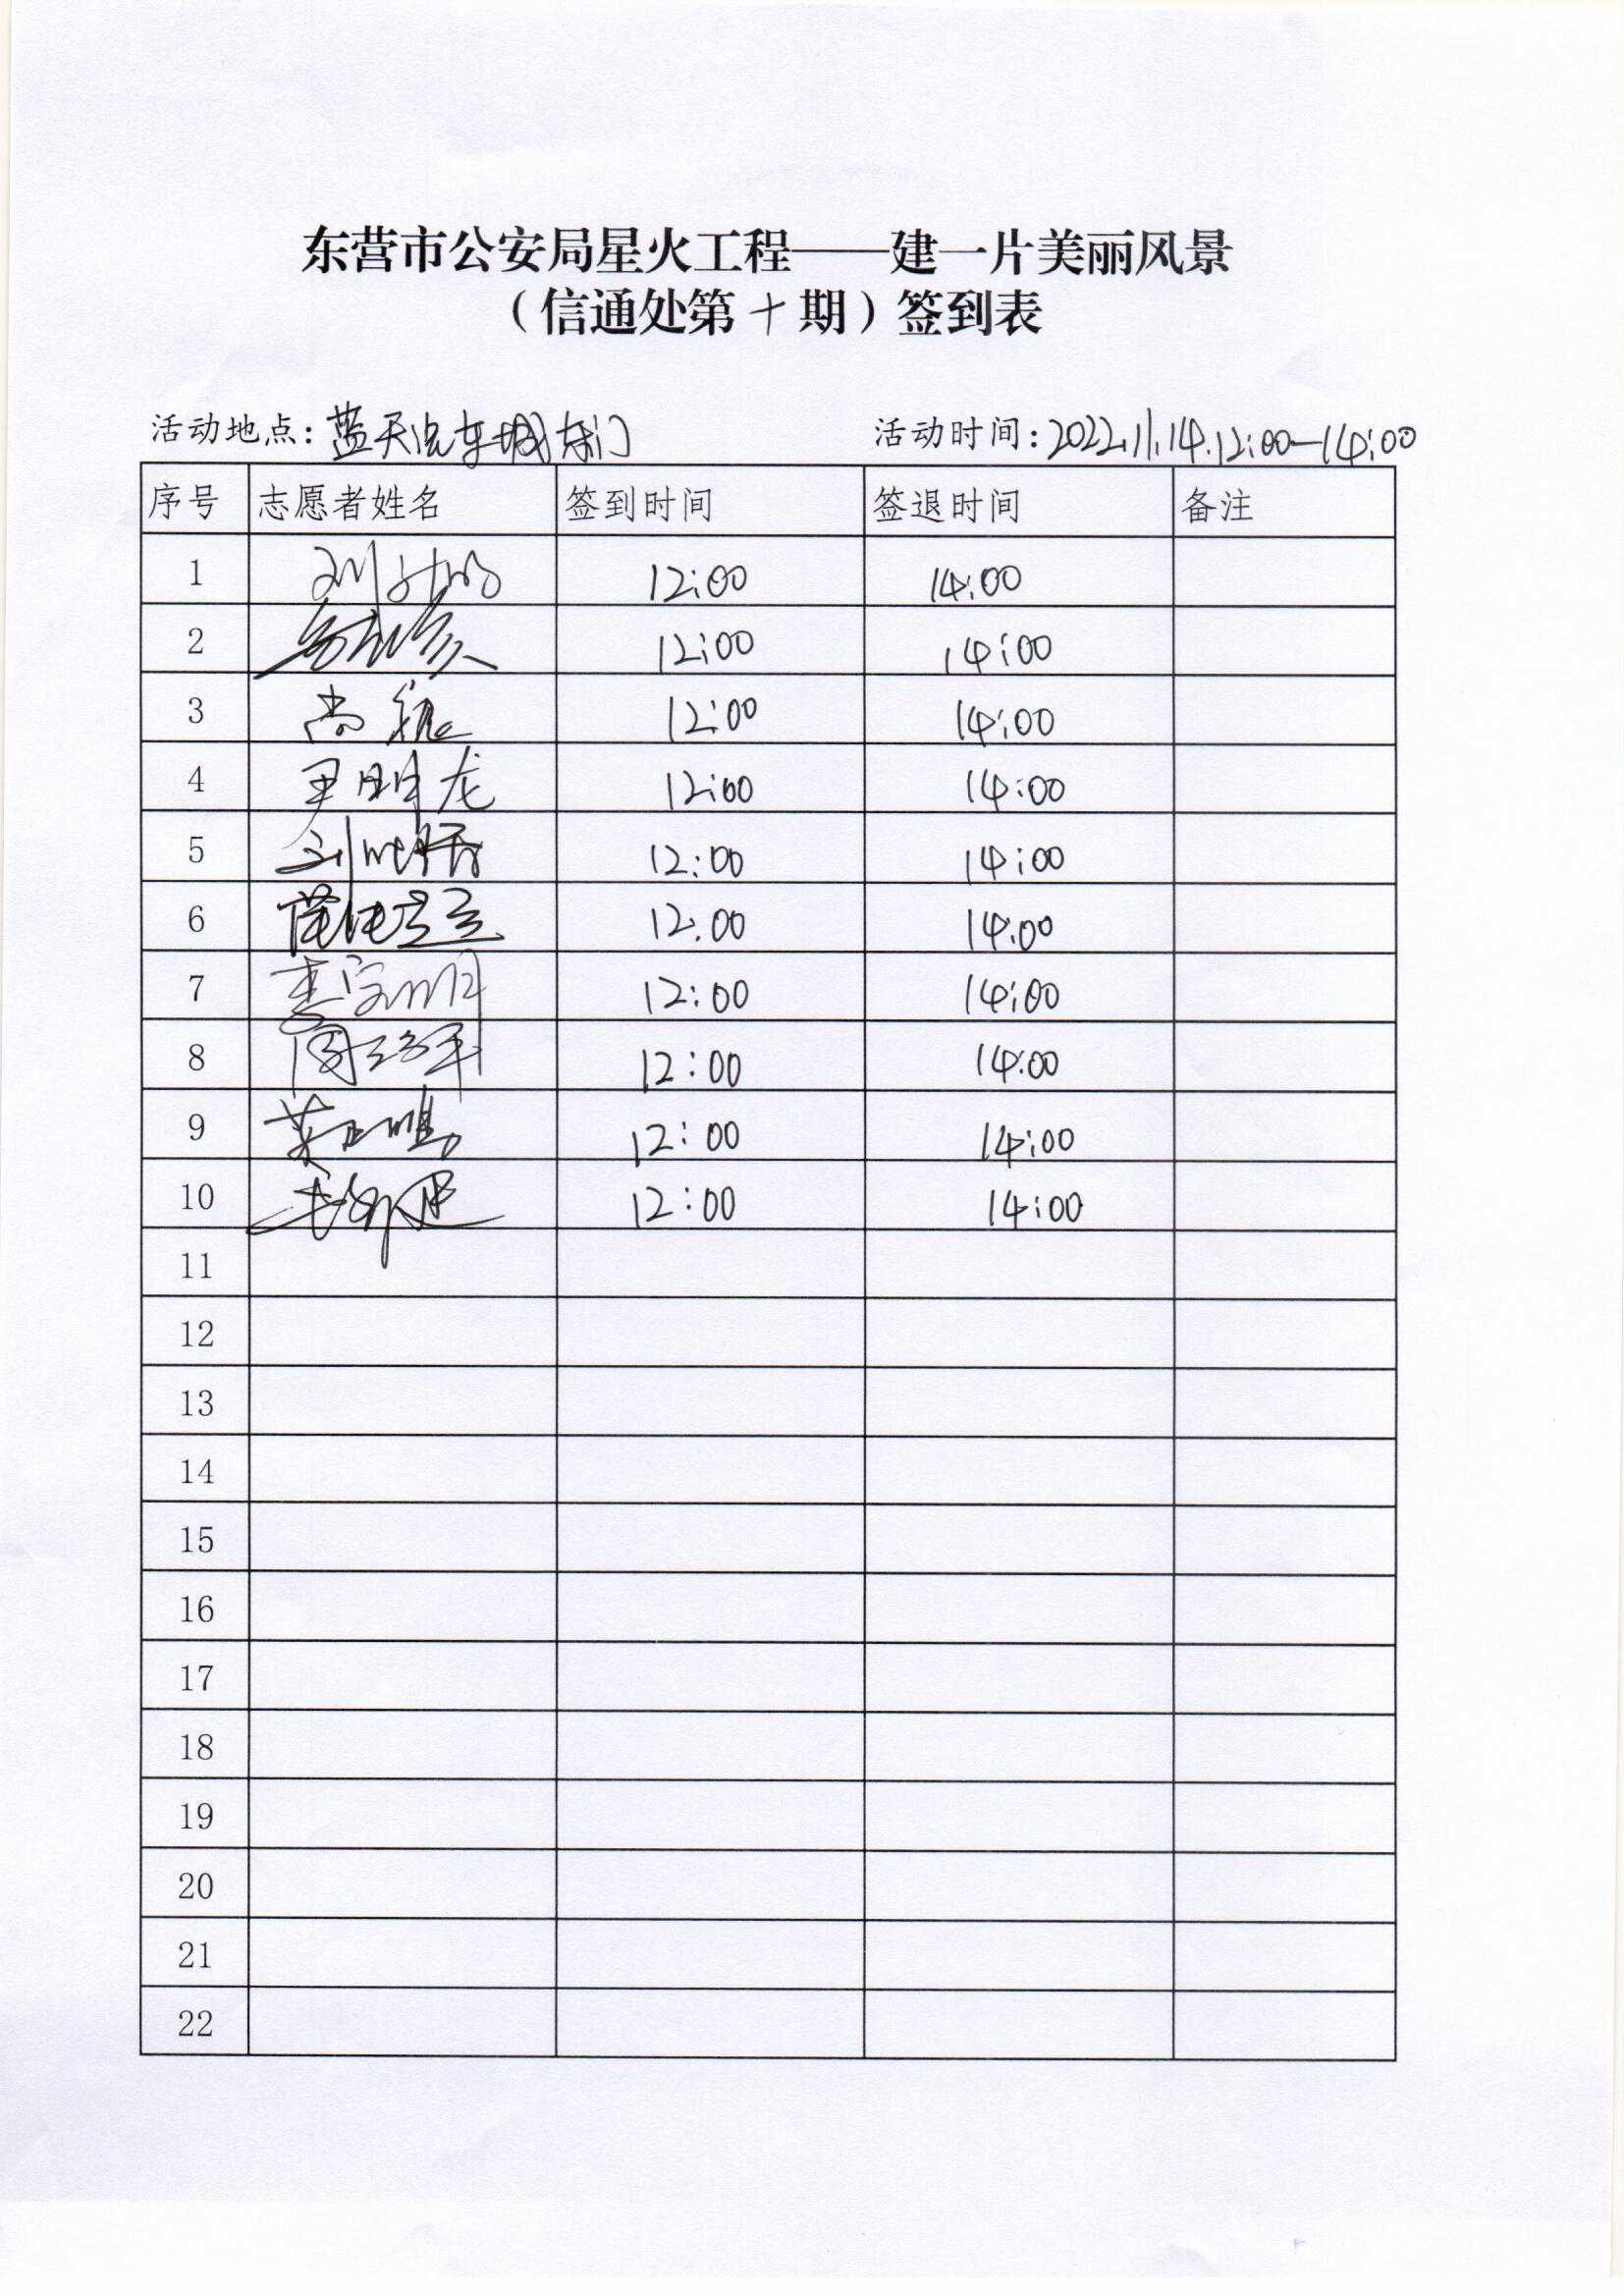 东营市公安局星火工程——建一片美丽风景
（信通处第十期）签到表
活动地点：蓝天汽车城东门 活动时间：2022.11.14.12:00—14:00
序号 志愿者姓名 签到时间 签退时间 备注
1 12:00 14:00
2 12:00 14:00
3 尚 12:00 14:00
4 尹明龙 12:00 14:00
5 刘 12:00 14:00
6 12:00 14:00
7 李 明 12:00 14:00
8 周 军 12:00 14:00
9 12:00 14:00
10 12:00 14:00
11
12
13
14
15
16
17
18
19
20
21
22